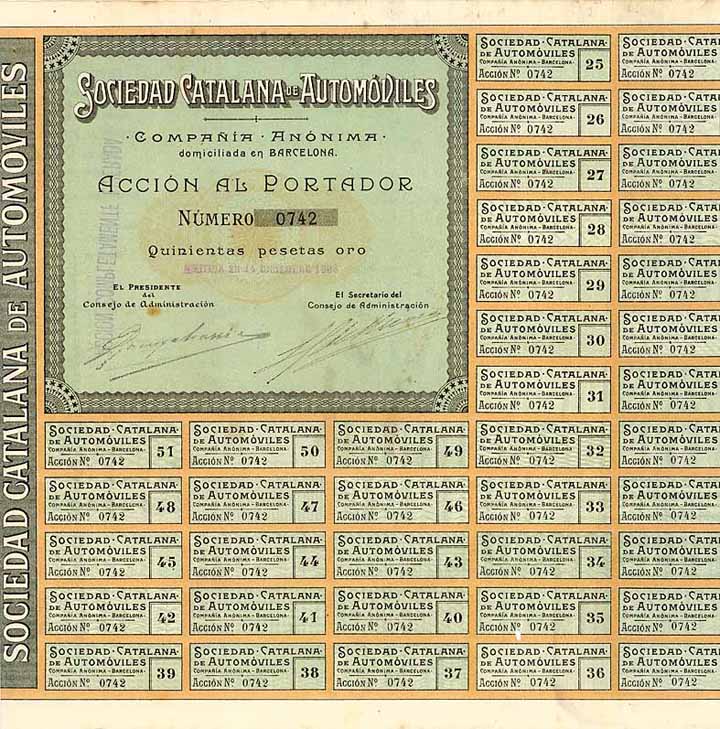 SOCIEDAD CATALANA DE AUTOMÓVILES
SOCIEDAD CATALANA DE AUTOMÓVILES
· COMPAÑÍA · ANÓNIMA ·
domiciliada en BARCELONA.
ACCIÓN AL PORTADOR
NÚMERO 0742
Quinientas pesetas oro
EL PRESIDENTE
del
Consejo de Administración
El Secretario del
Consejo de Administración
SOCIEDAD·CATALANA·
DE AUTOMÓVILES 25
COMPAÑÍA ANÓNIMA - BARCELONA·
ACCIÓN Nº 0742
SOCIEDAD·CATAL
DE AUTOMÓVILES
COMPAÑÍA ANÓNIMA - BARCELONA·
ACCIÓN Nº 0742
SOCIEDAD·CATALANA·
DE AUTOMÓVILES 26
COMPAÑÍA ANÓNIMA - BARCELONA·
ACCIÓN Nº 0742
SOCIEDAD·CATAL
DE AUTOMÓVILES
COMPAÑÍA ANÓNIMA - BARCELONA·
ACCIÓN Nº 0742
SOCIEDAD·CATALANA·
DE AUTOMÓVILES 27
COMPAÑÍA ANÓNIMA - BARCELONA·
ACCIÓN Nº 0742
SOCIEDAD·CATAL
DE AUTOMÓVILES
COMPAÑÍA ANÓNIMA - BARCELONA·
ACCIÓN Nº 0742
SOCIEDAD·CATALANA·
DE AUTOMÓVILES 28
COMPAÑÍA ANÓNIMA - BARCELONA·
ACCIÓN Nº 0742
SOCIEDAD·CATAL
DE AUTOMÓVILES
COMPAÑÍA ANÓNIMA - BARCELONA·
ACCIÓN Nº 0742
SOCIEDAD·CATALANA·
DE AUTOMÓVILES 29
COMPAÑÍA ANÓNIMA - BARCELONA·
ACCIÓN Nº 0742
SOCIEDAD·CATAL
DE AUTOMÓVILES
COMPAÑÍA ANÓNIMA - BARCELONA·
ACCIÓN Nº 0742
SOCIEDAD·CATALANA·
DE AUTOMÓVILES 30
COMPAÑÍA ANÓNIMA - BARCELONA·
ACCIÓN Nº 0742
SOCIEDAD·CATAL
DE AUTOMÓVILES
COMPAÑÍA ANÓNIMA - BARCELONA·
ACCIÓN Nº 0742
SOCIEDAD·CATALANA·
DE AUTOMÓVILES 31
COMPAÑÍA ANÓNIMA - BARCELONA·
ACCIÓN Nº 0742
SOCIEDAD·CATAL
DE AUTOMÓVILES
COMPAÑÍA ANÓNIMA - BARCELONA·
ACCIÓN Nº 0742
SOCIEDAD·CATALANA· SOCIEDAD·CATALANA· SOCIEDAD·CATALANA· SOCIEDAD·CATALANA· SOCIEDAD·CATAL
DE AUTOMÓVILES 51 DE AUTOMÓVILES 50 DE AUTOMÓVILES 49 DE AUTOMÓVILES 32 DE AUTOMÓVILES
COMPAÑÍA ANÓNIMA - BARCELONA· COMPAÑÍA ANÓNIMA - BARCELONA· COMPAÑÍA ANÓNIMA - BARCELONA· COMPAÑÍA ANÓNIMA - BARCELONA· COMPAÑÍA ANÓNIMA - BARCELONA·
ACCIÓN Nº 0742 ACCIÓN Nº 0742 ACCIÓN Nº 0742 ACCIÓN Nº 0742 ACCIÓN Nº 0742
SOCIEDAD·CATALANA· SOCIEDAD·CATALANA· SOCIEDAD·CATALANA· SOCIEDAD·CATALANA· SOCIEDAD·CATAL
DE AUTOMÓVILES 48 DE AUTOMÓVILES 47 DE AUTOMÓVILES 46 DE AUTOMÓVILES 33 DE AUTOMÓVILES
COMPAÑÍA ANÓNIMA - BARCELONA· COMPAÑÍA ANÓNIMA - BARCELONA· COMPAÑÍA ANÓNIMA - BARCELONA· COMPAÑÍA ANÓNIMA - BARCELONA· COMPAÑÍA ANÓNIMA - BARCELONA·
ACCIÓN Nº 0742 ACCIÓN Nº 0742 ACCIÓN Nº 0742 ACCIÓN Nº 0742 ACCIÓN Nº 0742
SOCIEDAD·CATALANA· SOCIEDAD·CATALANA· SOCIEDAD·CATALANA· SOCIEDAD·CATALANA· SOCIEDAD·CATAL
DE AUTOMÓVILES 45 DE AUTOMÓVILES 44 DE AUTOMÓVILES 43 DE AUTOMÓVILES 34 DE AUTOMÓVILES
COMPAÑÍA ANÓNIMA - BARCELONA· COMPAÑÍA ANÓNIMA - BARCELONA· COMPAÑÍA ANÓNIMA - BARCELONA· COMPAÑÍA ANÓNIMA - BARCELONA· COMPAÑÍA ANÓNIMA - BARCELONA·
ACCIÓN Nº 0742 ACCIÓN Nº 0742 ACCIÓN Nº 0742 ACCIÓN Nº 0742 ACCIÓN Nº 0742
SOCIEDAD·CATALANA· SOCIEDAD·CATALANA· SOCIEDAD·CATALANA· SOCIEDAD·CATALANA· SOCIEDAD·CATAL
DE AUTOMÓVILES 42 DE AUTOMÓVILES 41 DE AUTOMÓVILES 40 DE AUTOMÓVILES 35 DE AUTOMÓVILES
COMPAÑÍA ANÓNIMA - BARCELONA· COMPAÑÍA ANÓNIMA - BARCELONA· COMPAÑÍA ANÓNIMA - BARCELONA· COMPAÑÍA ANÓNIMA - BARCELONA· COMPAÑÍA ANÓNIMA - BARCELONA·
ACCIÓN Nº 0742 ACCIÓN Nº 0742 ACCIÓN Nº 0742 ACCIÓN Nº 0742 ACCIÓN Nº 0742
SOCIEDAD·CATALANA· SOCIEDAD·CATALANA· SOCIEDAD·CATALANA· SOCIEDAD·CATALANA· SOCIEDAD·CATAL
DE AUTOMÓVILES 39 DE AUTOMÓVILES 38 DE AUTOMÓVILES 37 DE AUTOMÓVILES 36 DE AUTOMÓVILES
COMPAÑÍA ANÓNIMA - BARCELONA· COMPAÑÍA ANÓNIMA - BARCELONA· COMPAÑÍA ANÓNIMA - BARCELONA· COMPAÑÍA ANÓNIMA - BARCELONA· COMPAÑÍA ANÓNIMA - BARCELONA·
ACCIÓN Nº 0742 ACCIÓN Nº 0742 ACCIÓN Nº 0742 ACCIÓN Nº 0742 ACCIÓN Nº 0742